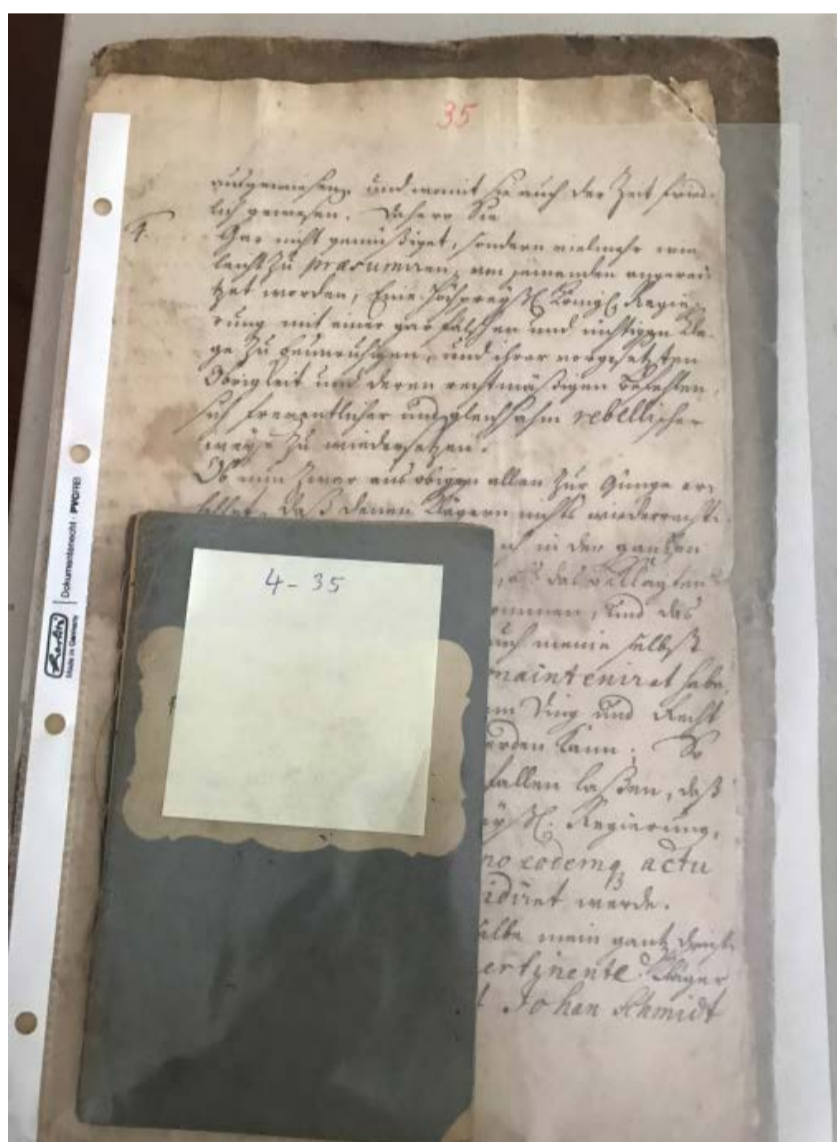 35
ausgewiesen, und womit sie auch der Zeit fried-
lich gewesen. Dahero Sie
4.
Gar nicht gemüßiget, sondern vielmehr wie
leicht zu præsumiren, von jemanden angerei-
tzet worden, Eine Hochpreyßl. Königl. Regie-
rung mit einer gar falschen und nichtigen Kla-
ge zu beunruhigen, und ihrer vorgesetzten
Obrigkeit und deren rechtmäßigen Befehlen,
sich freventlicher und gleichsahm rebellischer
weyse zu wiedersetzen.
Ob nun zwar aus obigen allen zur Gnüge er-
hellet, daß denen Klägern nichts wiederrechtl.
in den gantzen
Beklagten
kommen, und das
auch meine selbst
mainteniret habe,
Ding und Recht
werden kann; So
fallen laßen, daß
Regierung,
no eodemq actu
idiret werde.
mein gantz
ertinente Kläger
Johan Schmidt
4-35
Dokumentenecht · PVC/RB
Made in Germany